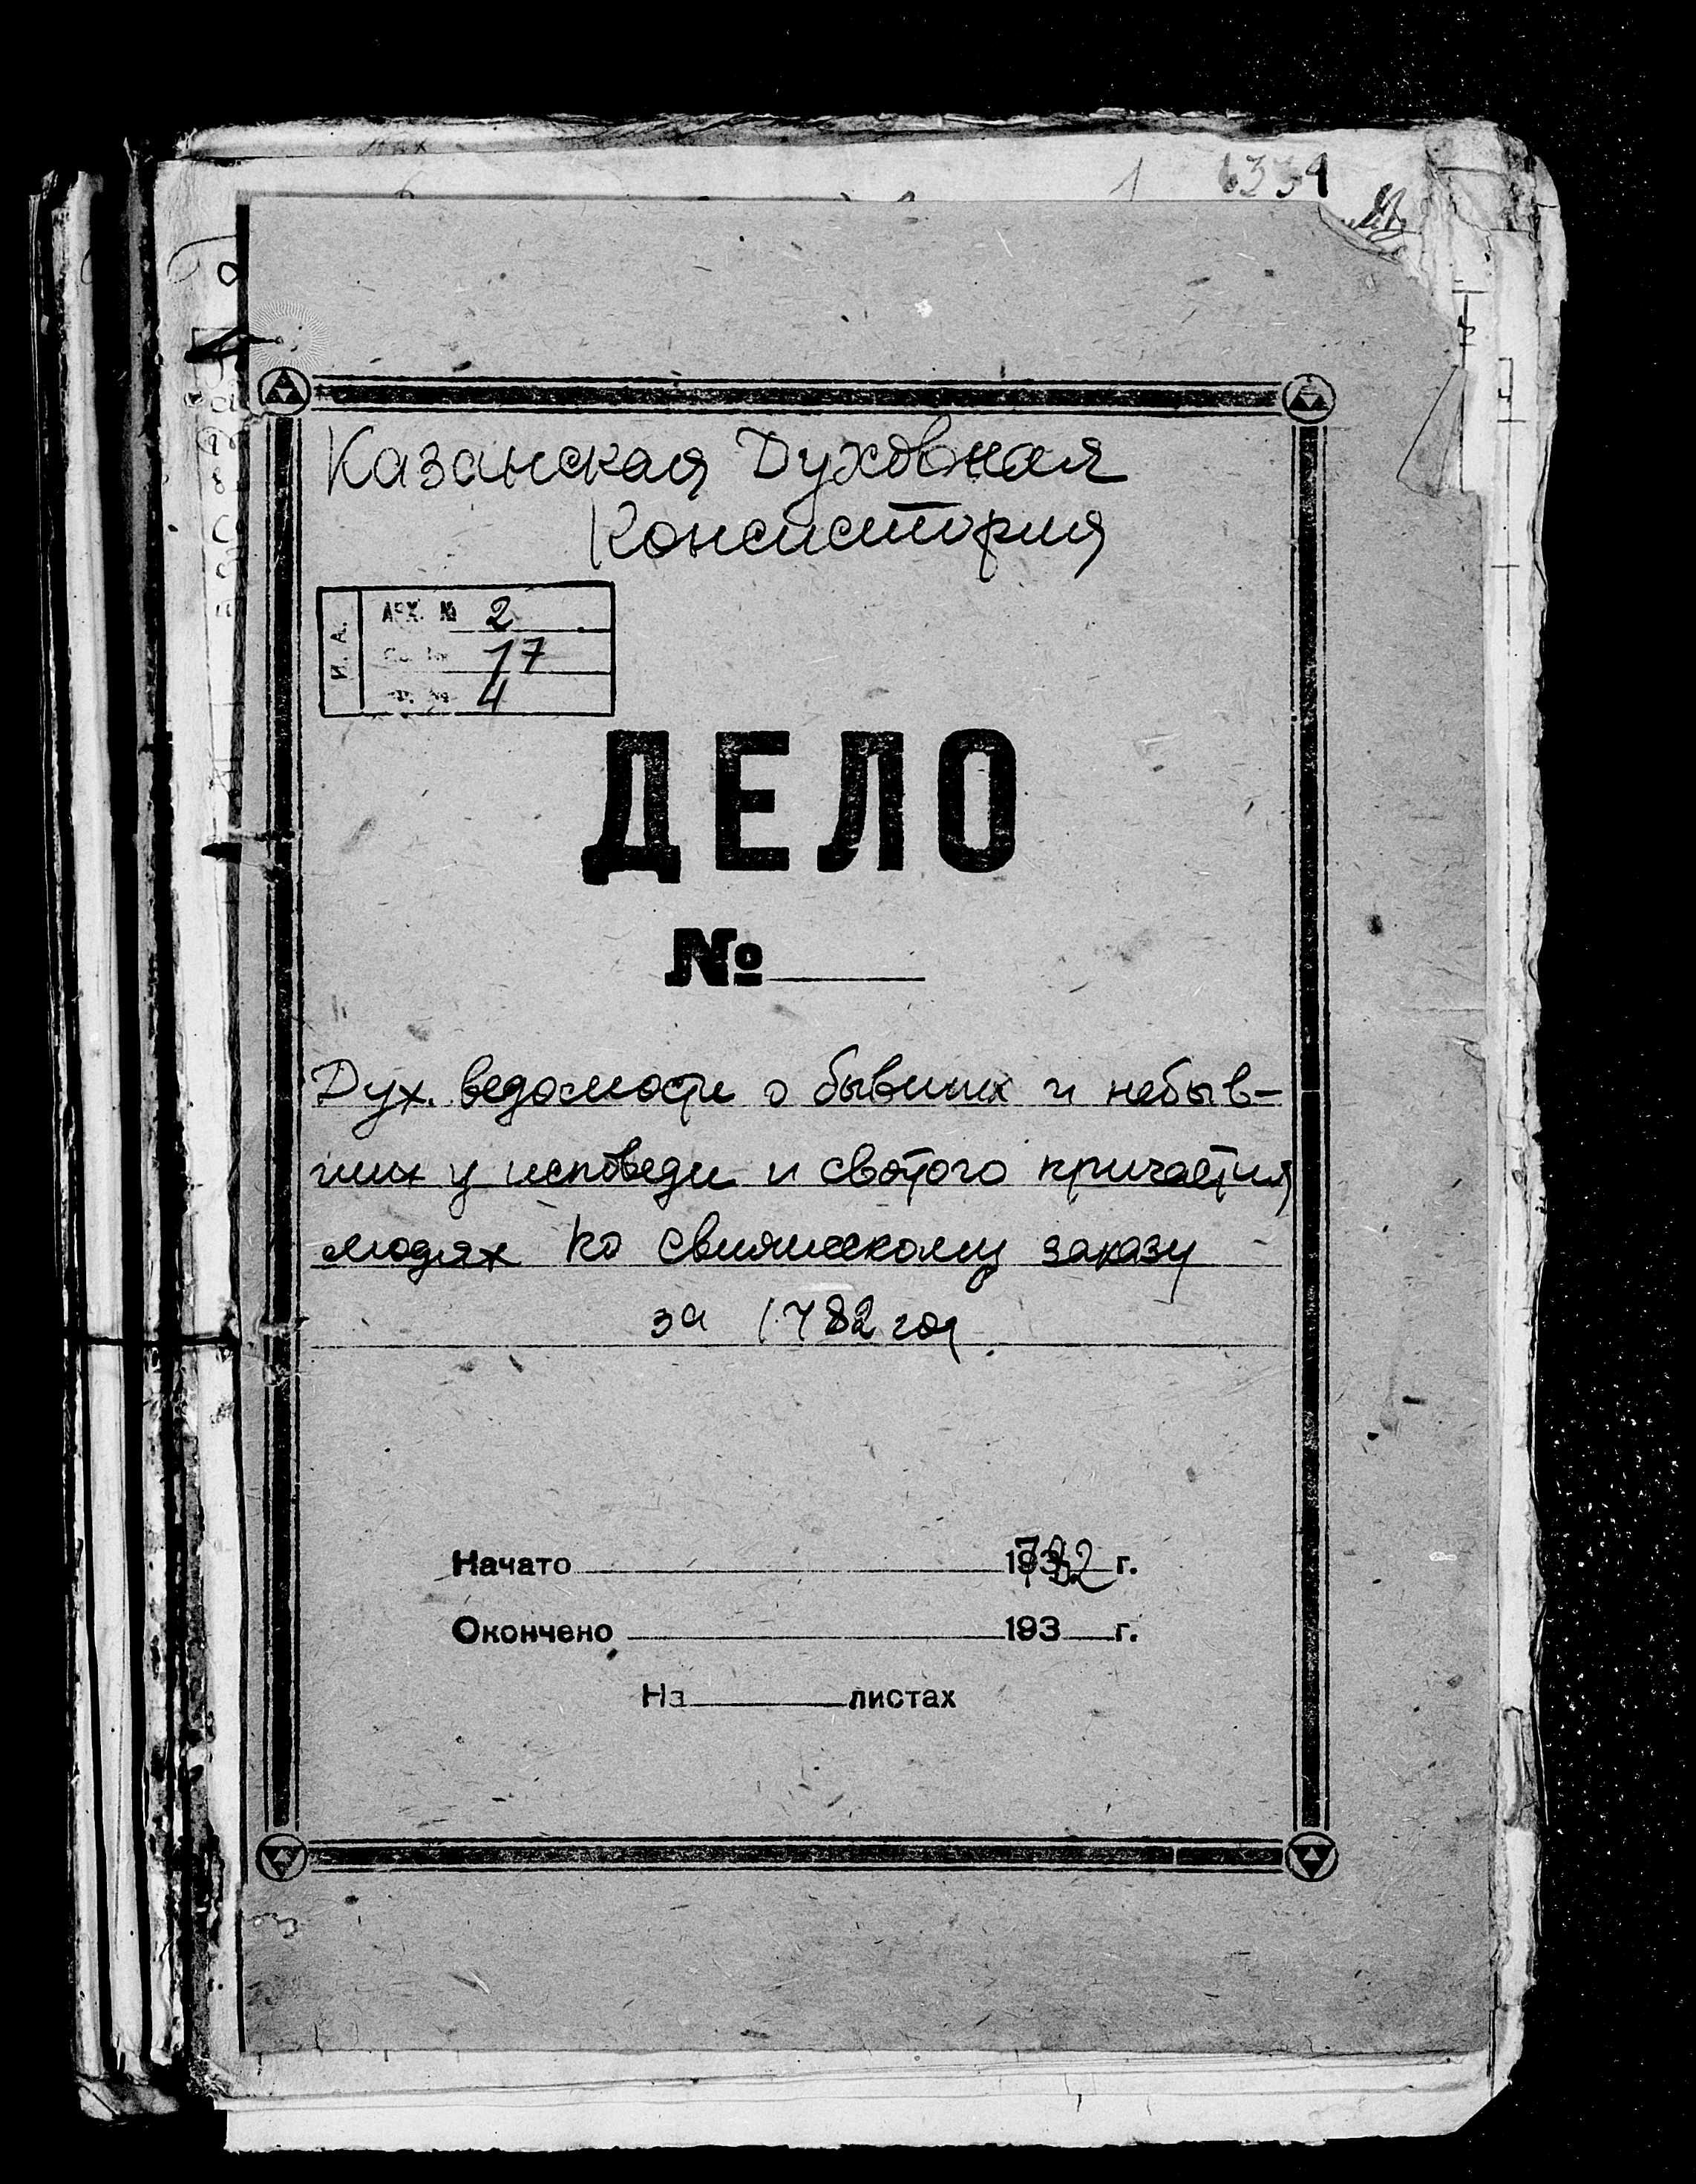 1 6339
Казанская Духовная
Консистория
И. А.
АРХ. № 2
17
4
ДЕЛО
№
Дух. ведомости о бывших и небыв-
ших у исповеди и святого причастия
людях ко свияжскому заказу
за 1782 год
Начато 1782 г.
Окончено 193 г.
На листах